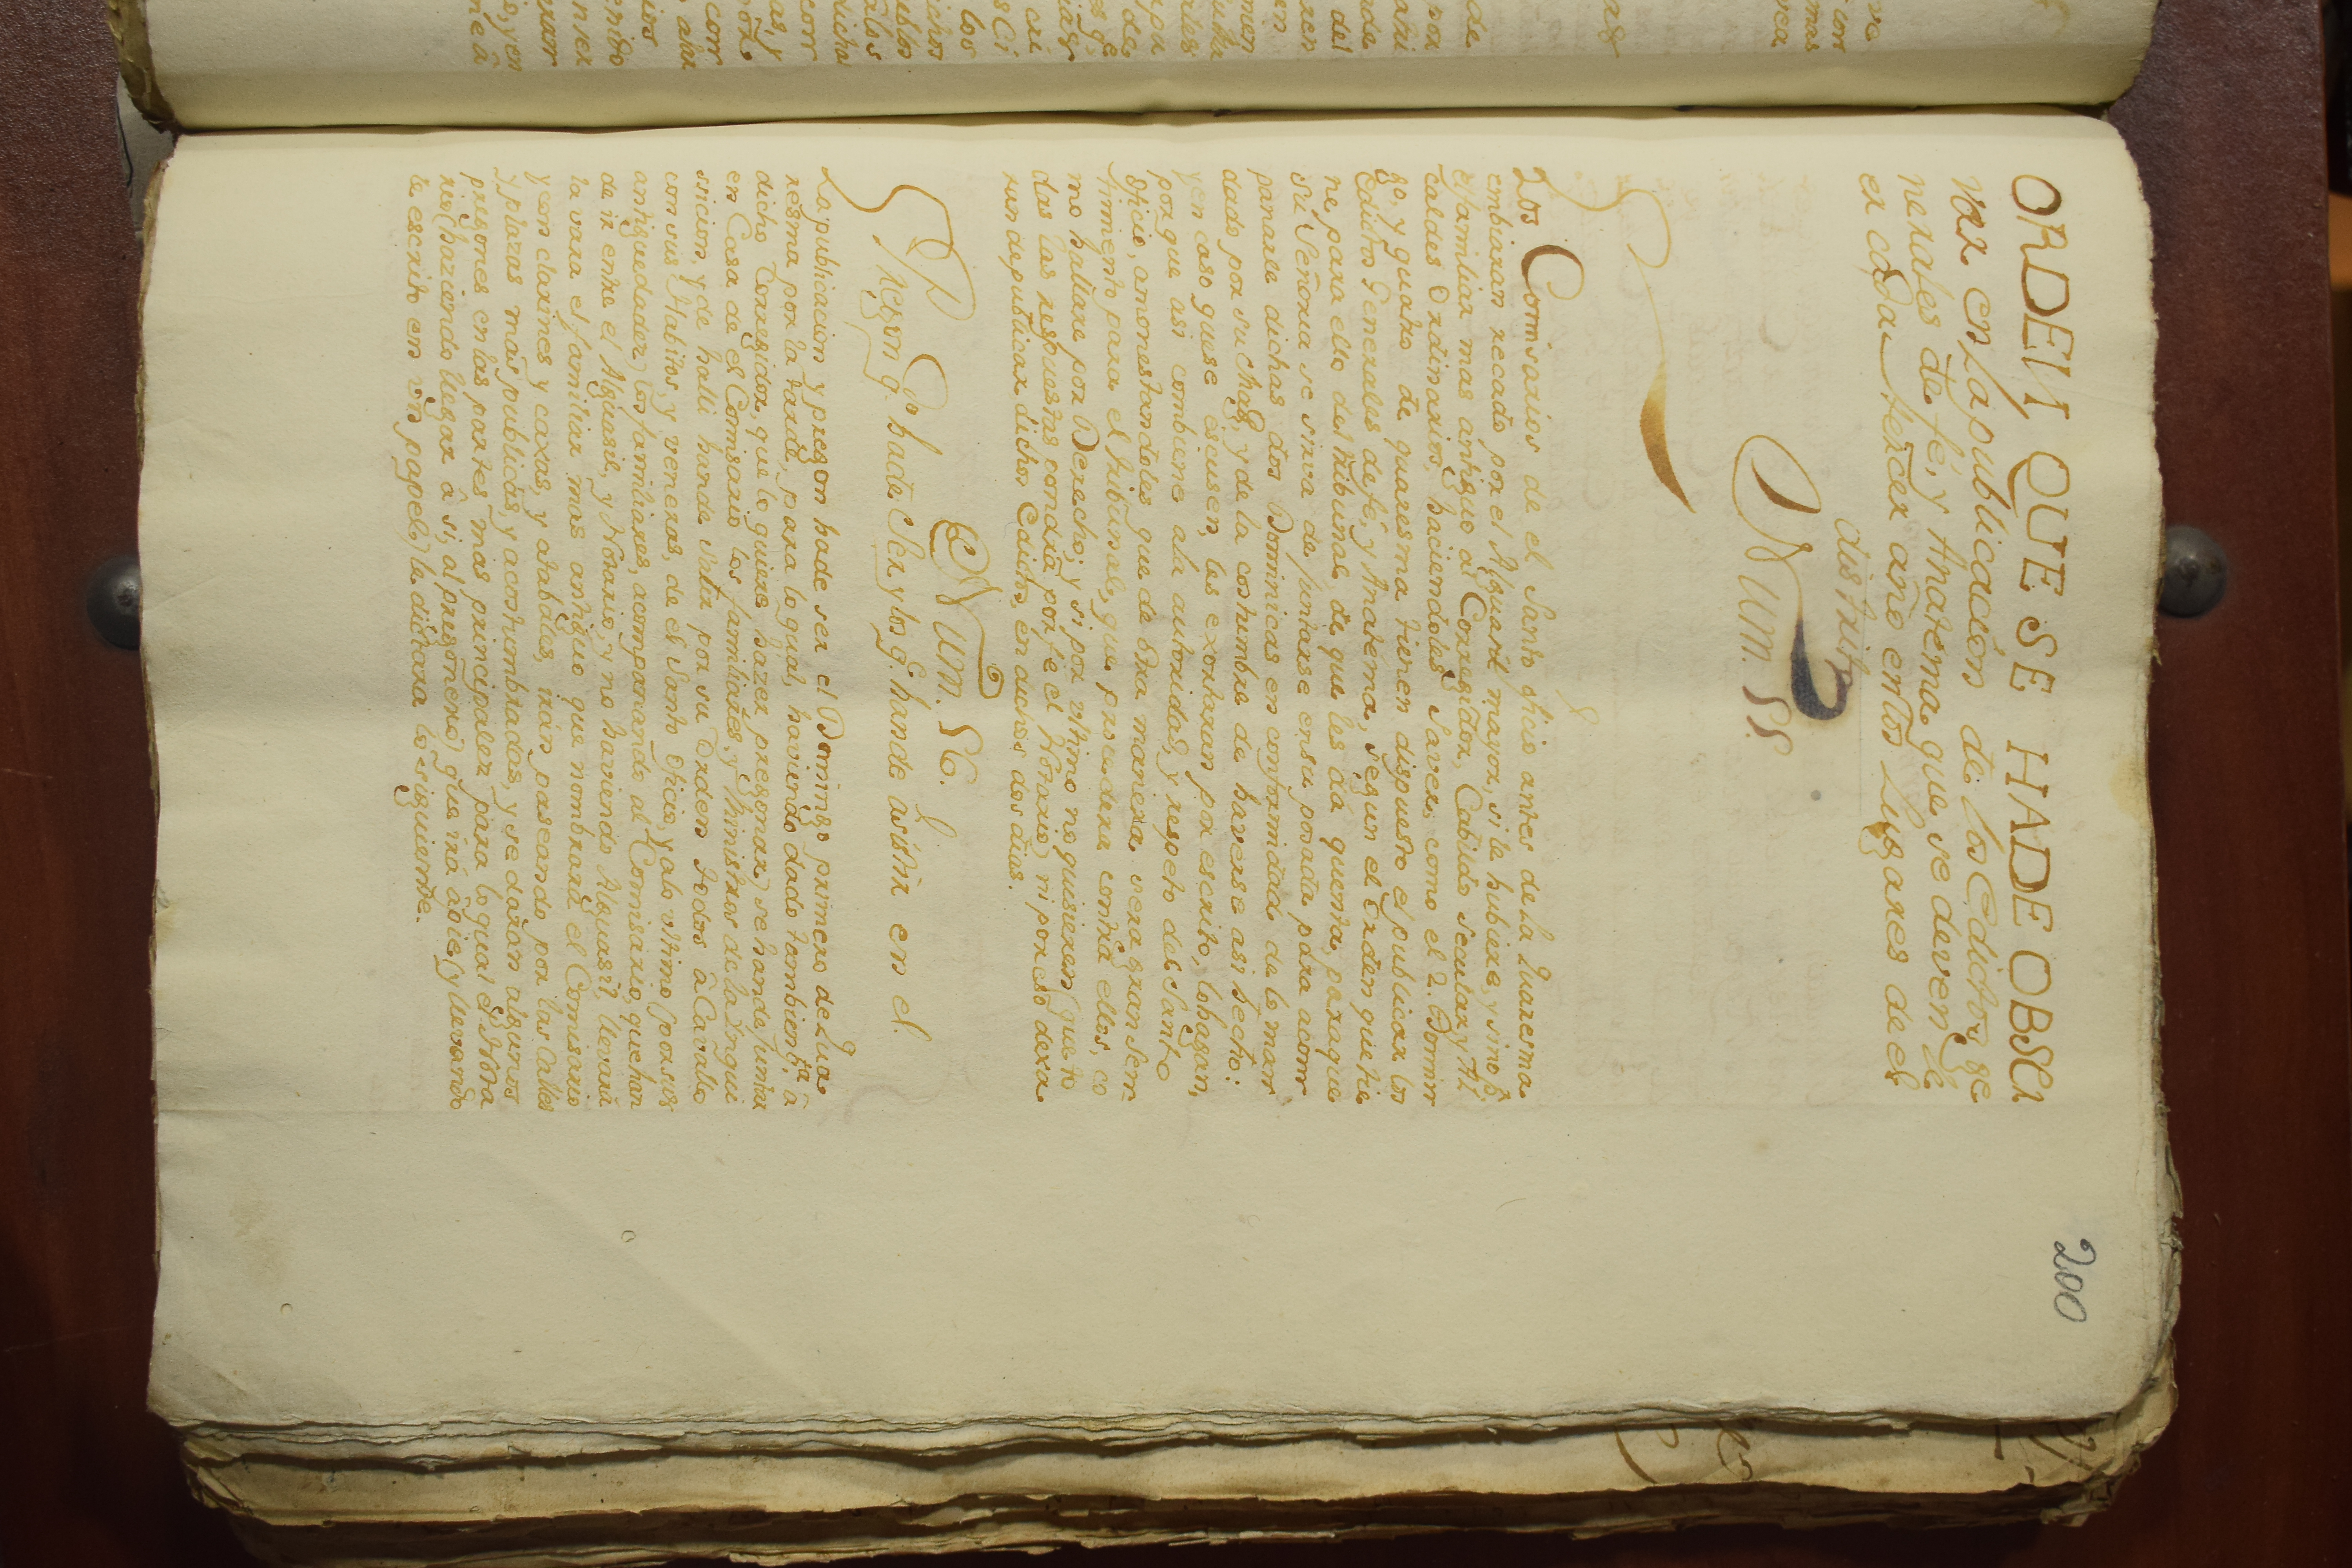 200
ORDEN, QUE SE HADE OBSER
var en la publicación de los Edictos ge
nerales de fé, y Anatema que se deven le
er cada tercer año en los Lugares de el
distrito
Num. 55.
Los Comisarios de el Santo ofisio antes de la Quaresma
embiaran recado por el Alguasil mayor, si le hubiere, y sino p.r
el familiar mas antiguo al Corregidor, Cabildo secular, y Al
caldes Ordinarios, haciendoles Saver, como el 2. Domin
go, y quarto de quaresma tienen dispuesto el publicar los
Edictos Generales defé, y Anatema, segun el Orden que tie
ne para ello del tribunal, de que les dá quenta, paraque
su Señoria se sirva de juntarse en su posada para acom
pañarle dichas dos Dominicas en conformidad de lo man
dado por su Mag.d y de la costumbre de haverse asi hecho:
y en caso que se escusen, les exortaran por escrito, lo hagan,
por que asi combiene ala autoridad, y respeto del Santo
ofisio, amonestandoles que de otra manera sera gran sen
timiento para el tribunal, que procedera contra ellos, co
mo hallare por Derecho; y si por ultimo no quisieren (que to
das las respuestas pondrá por fe el Notario) ni por eso dexa
ran de publicar dichos Edictos, en dichos dos dias.
Num. 56.
Pregon q. se hade Ser y los q. hande asistir en el
La publicacion y pregon hade ser el Domingo primero de Qua
resma por la tarde, para lo qual, haviendo dado tambien q.ta â
dicho Corregidor, que lo quiere hazer pregonar, se hande juntar
en Casa de el Comisario los familiares, y Ministros de la Inqui
sicion, y de halli hande salir por su Orden todos â Cavallo
con sus Habitos, y veneras, de el Santo Oficio, y alo ultimo (por sus
antiguedades) los familiares, acompanando al Comisario, que han
de ir entre el Alguasil, y Notario, y no haviendo Alguasil, llevará
la vara el familiar mas antiguo que nombrará el Comisario
y con clarines y caxas, y atabales, irán paseando por las Calles
y plazas mas publicas, y acostumbradas, y se darán algunos
pregones en las partes mas principales para lo qual el Nota
rio (haziendo llegar â si, al pregonero) que irá âpie (y llevando
le escrito en un papel) le dictara lo siguiente.